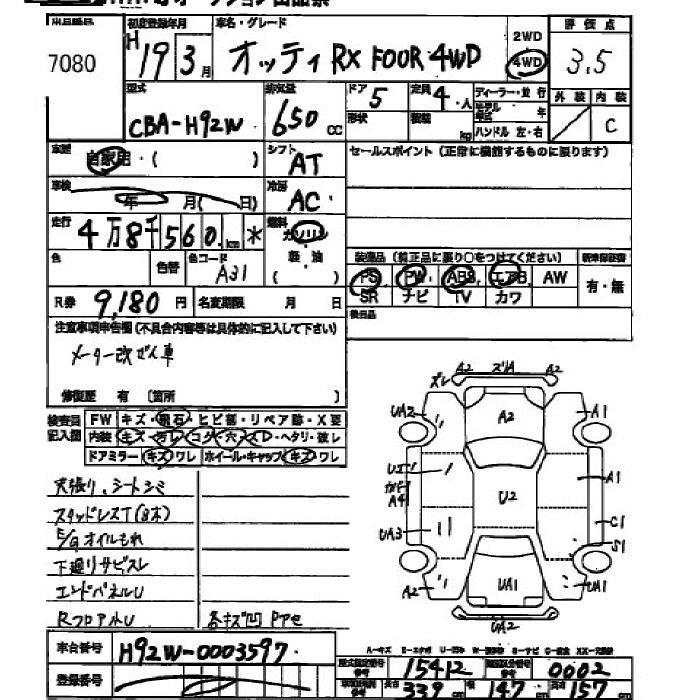 出品番号 初度登録年月 車名・グレード 評価点
7080 H19 3月 オッティ RX FOUR 4WD 2WD 4WD 3.5
型式 排気量 ドア 5 定員 4・人 ディーラー・並行 外装 内装
CBA-H92W 650cc 形状 kg ハンドル 左・右 C
車歴 自家用・( ) シフト AT セールスポイント (正常に機能するものに限ります)
車検 年 月( 日) 冷房 AC
走行 4万8千560km * 燃料 ガソリン
色 色替 色コード A31 軽・油 ( )
装備品 (純正品に限り○をつけてください) 新車保証書
PS PW ABS エアB AW 有・無
SR ナビ TV カワ
R券 9,180円 名変期限 月 日
後日品
注意事項申告欄(不具合内容等は具体的に記入して下さい)
メーター改ざん車
修復歴 有 (箇所 )
検査員記入欄 FW キズ・飛石・ヒビ割・リペア跡・X要
内装 キズ・汚レ・コゲ・穴・スレ・ヘタリ・破レ
ドアミラー キズ ワレ ホイール・キャップ キズ・ワレ
天張り、シートシミ
スタッドレスT(8本)
E/Gオイルもれ
下廻りサビスレ
エンドパネルU
RフロアルU 各キズ凹 PPセ
ズレ A2 ズレA A2
UA2 A2 A1
UI カド A4 U2 A1
UA3 C1
S1
A2 UA1 UA1
UA2
車台番号 H92W-0003597
登録番号
型式指定番号 15412 類別区分番号 0002
長さ 339cm 幅 147cm 高さ 157cm